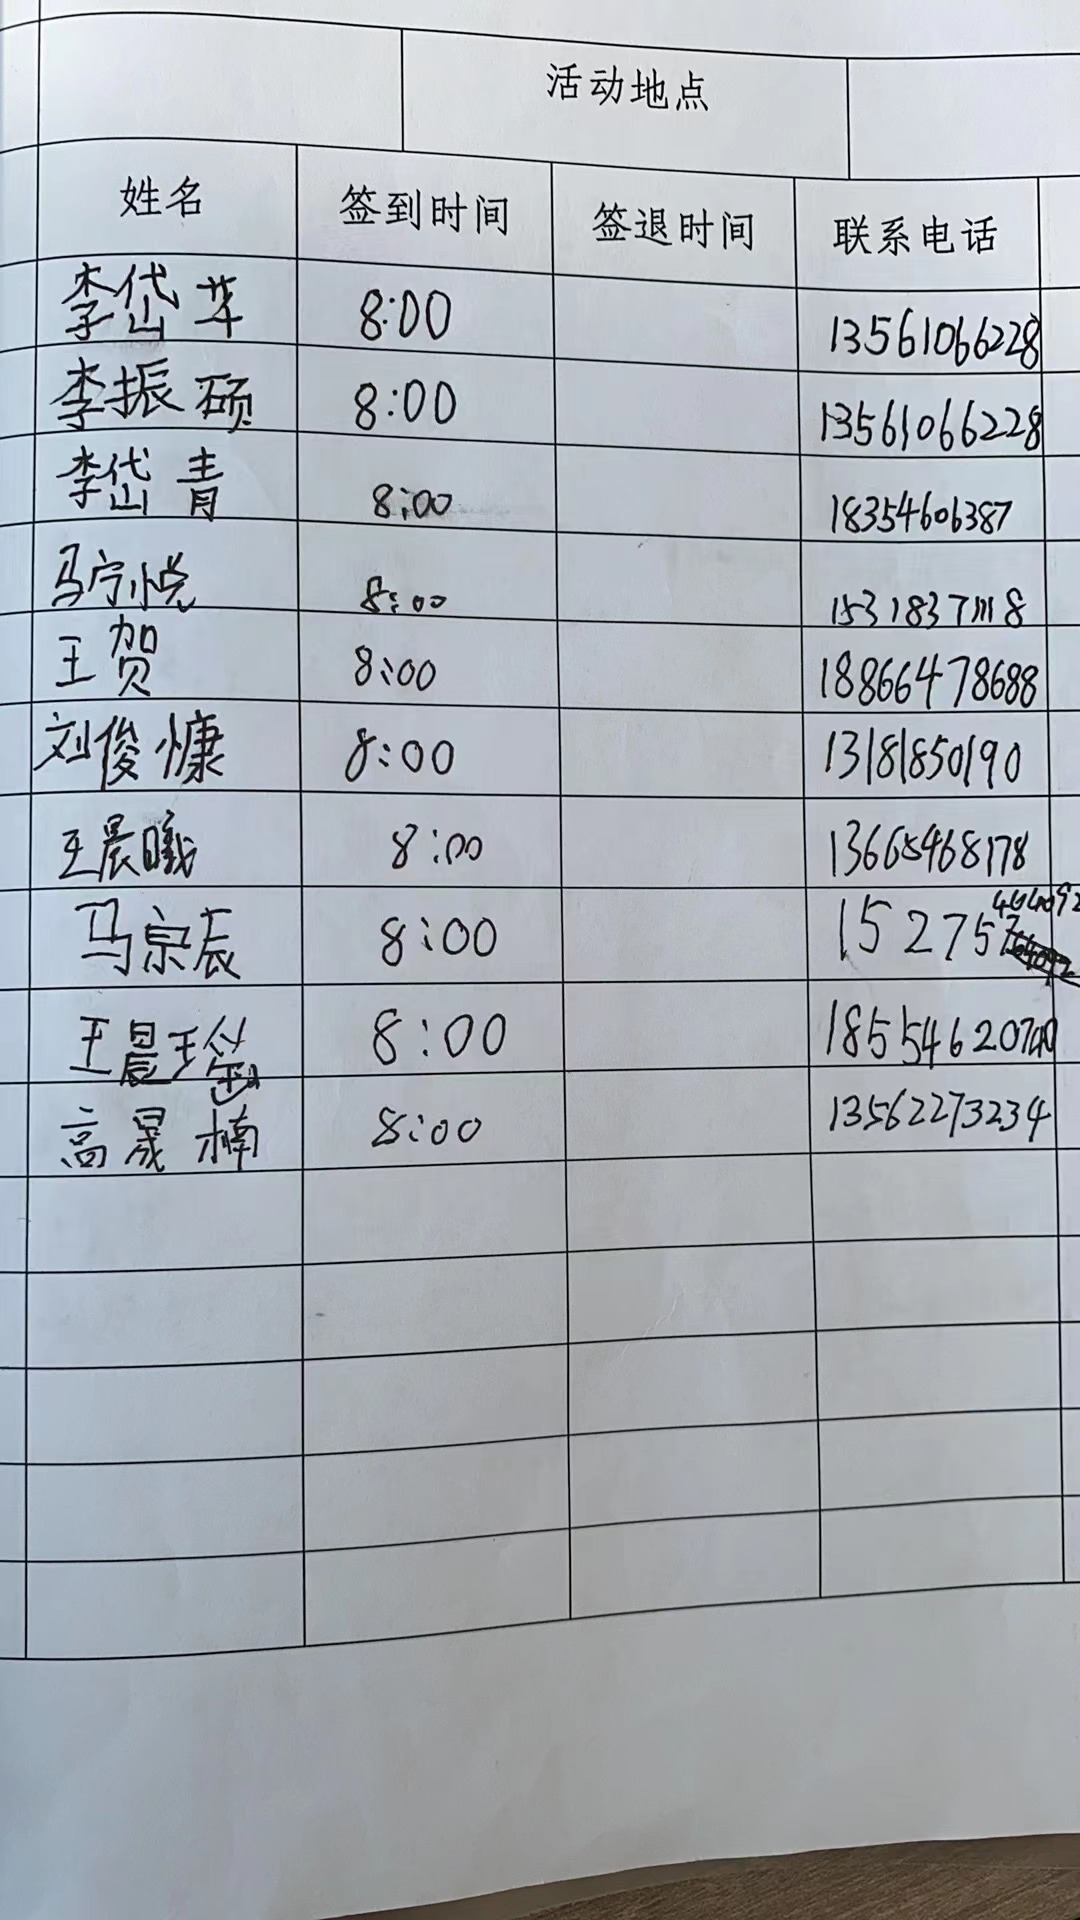 活动地点
姓名 签到时间 签退时间 联系电话
李岱苹 8:00 13561066228
李振硕 8:00 13561066228
李岱青 8:00 18354606387
马宁悦 8:00 15318371118
王贺 8:00 18866478688
刘俊慷 8:00 13181850190
王晨曦 8:00 13665468178
马京辰 8:00 152757
王晨瑶 8:00 18554620740
高晟楠 8:00 13562273234